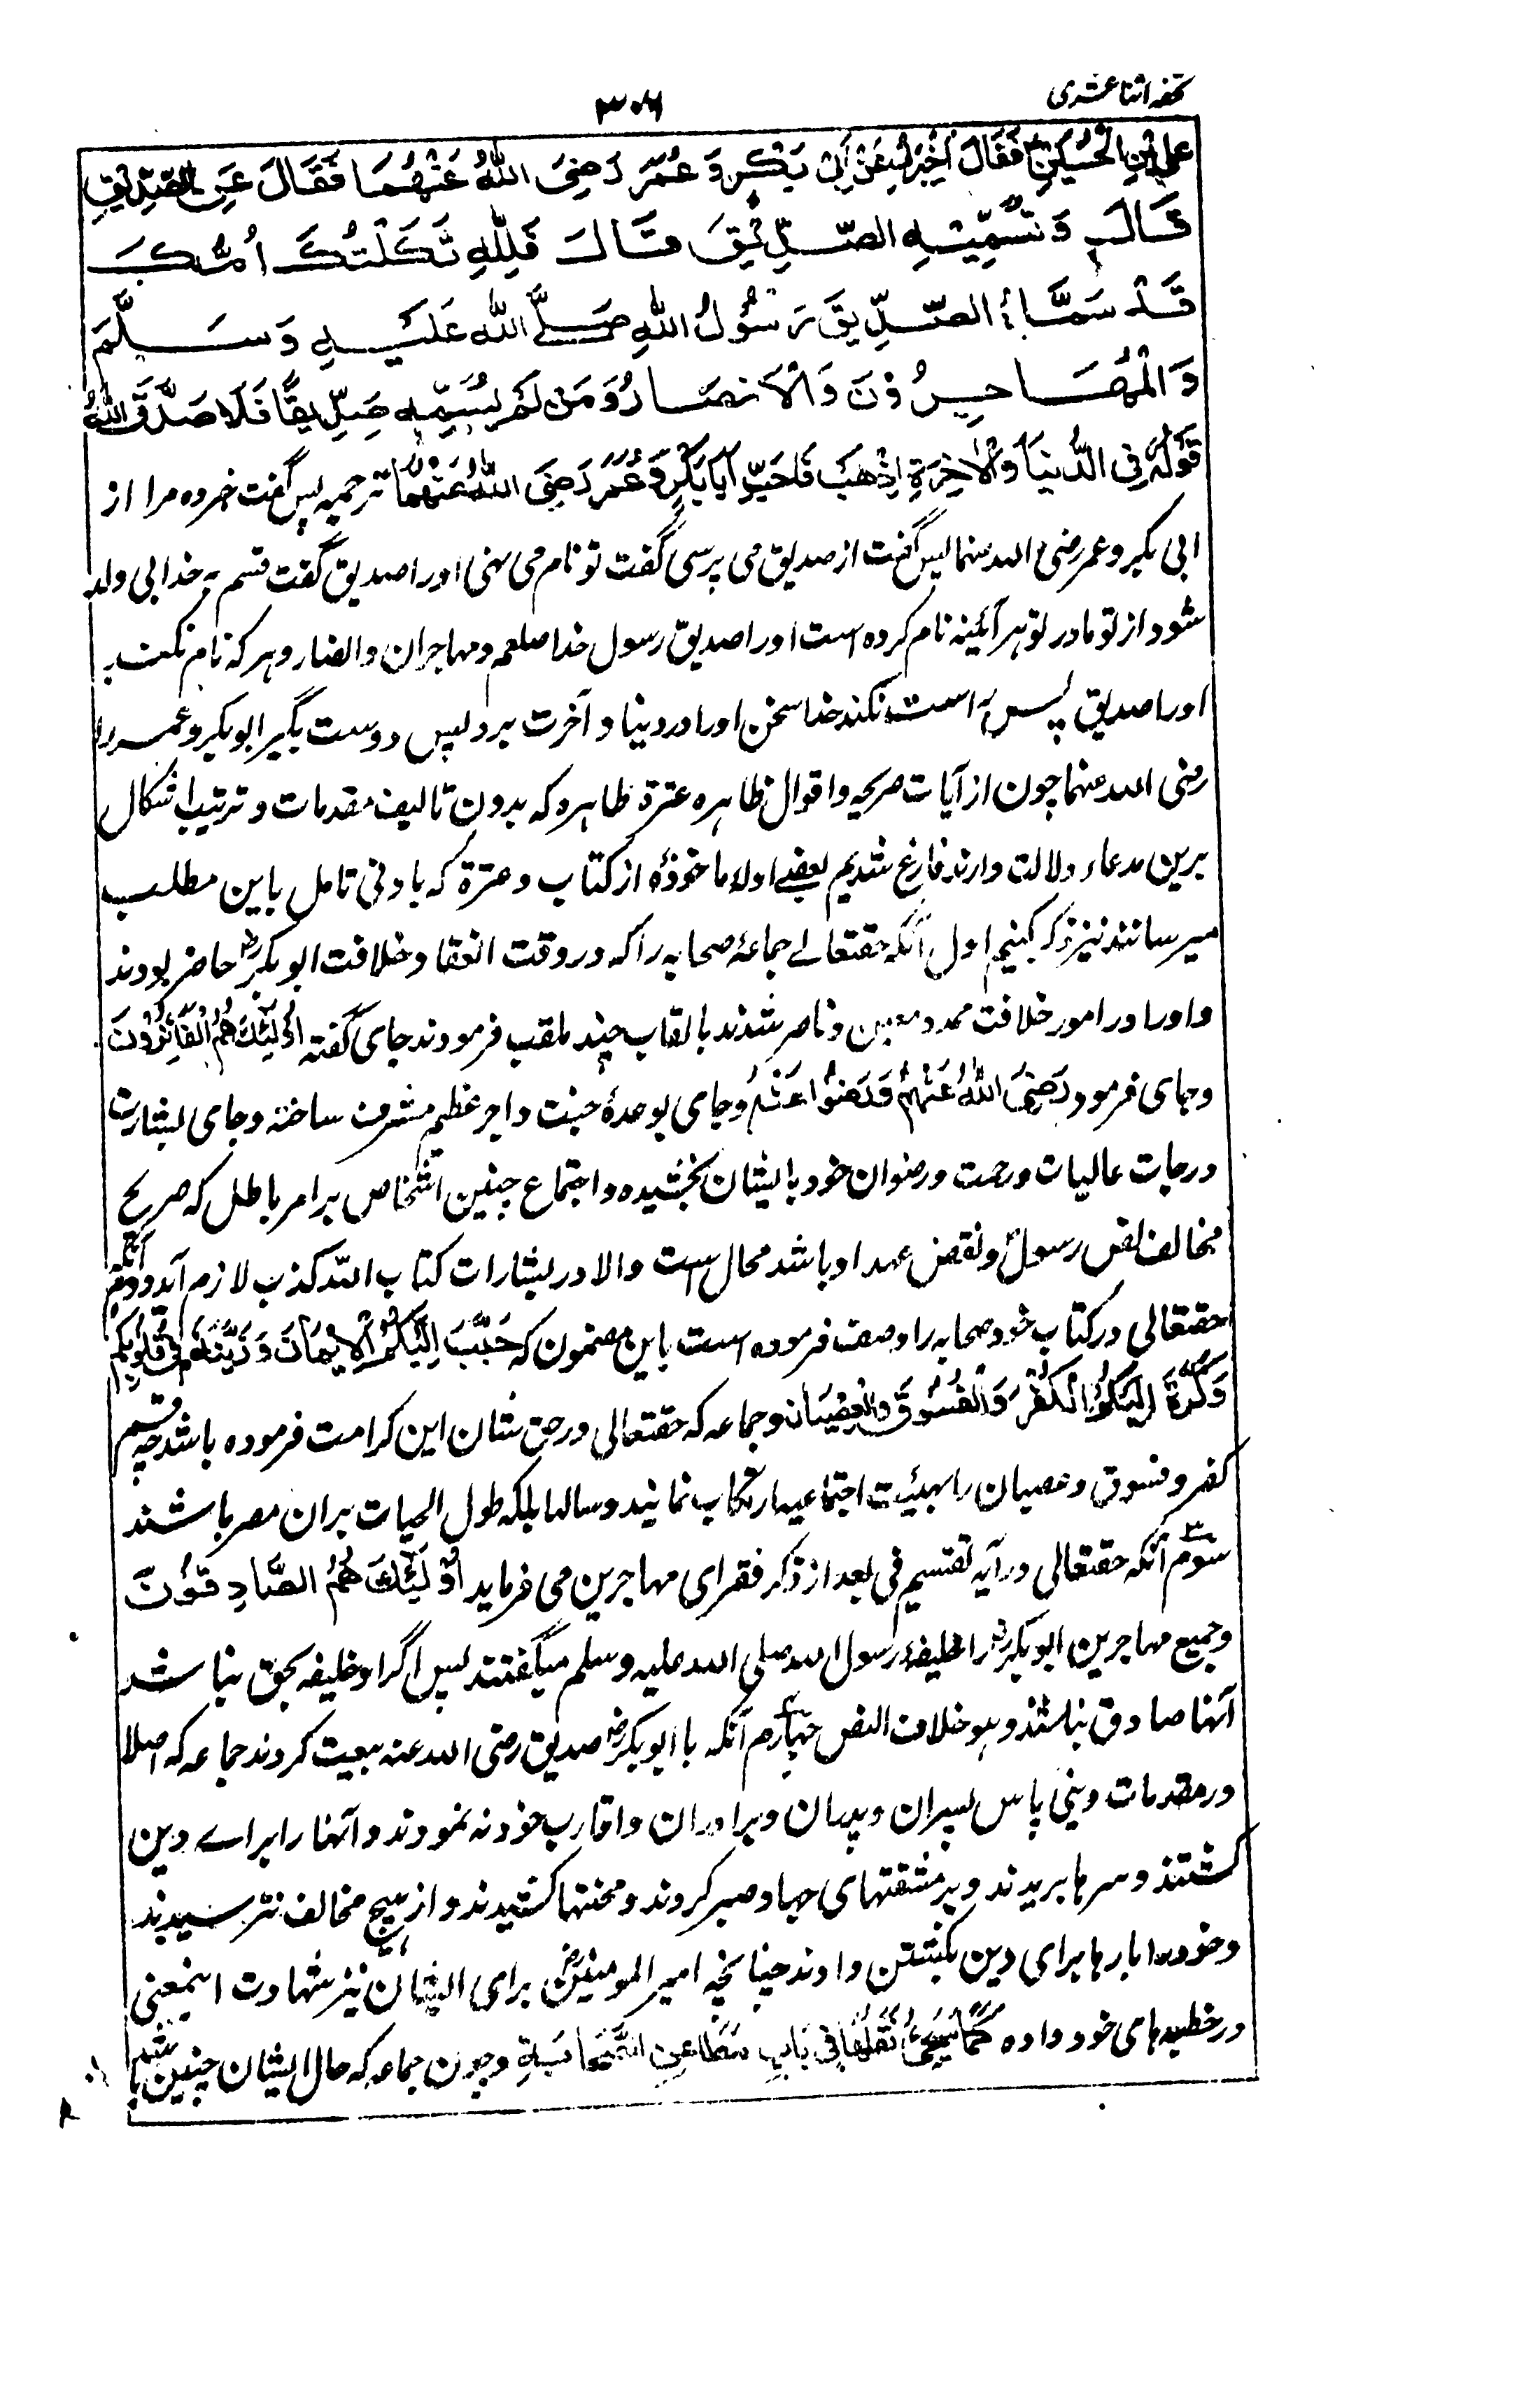 تحفه اثنا عشری
۳۰۶
علی بْنِ الْحُسَیْنِ فَقَالَ اَخْبِرْنِیْ عَنْ اَبِیْ بَکْرٍ وَ عُمَرَ رَضِیَ اللّٰهُ عَنْهُمَا فَقَالَ عَنِ الصِّدِّیْقِ
قَالَ وَ تُسَمِّیْهِ الصِّدِّیْقَ قَالَ فَلِلّٰهِ ثَکَلَتْكَ اُمُّكَ
قَدْ سَمَّاهُ الصِّدِّیْقَ رَسُوْلُ اللّٰهِ صَلَّی اللّٰهُ عَلَیْهِ وَسَلَّمَ
وَالْمُهَاجِرُوْنَ وَالْاَنْصَارُ وَمَنْ لَمْ یُسَمِّهِ صِدِّیْقًا فَلَا صَدَّقَ اللّٰهُ
قَوْلَهٗ فِی الدُّنْیَا وَالْاٰخِرَةِ اِذْهَبْ فَاَحِبَّ اَبَابَکْرٍ وَعُمَرَ رَضِیَ اللّٰهُ عَنْهُمَا ترجمه پس گفت خبرده مرا از
ابی بکر و عمر رضی الله عنهما پس گفت از صدیق می پرسی گفت تو نام می نهی اورا صدیق گفت قسم به خدا بی ولد
شود از تو مادر تو هر آئینه نام کرده است اورا صدیق رسول خدا صلعم و مهاجران و انصار و هر که نام نکند
اورا صدیق پس راست نکند خدا سخن اورا در دنیا و آخرت برو پس دوست بگیر ابوبکر و عمر را
رضی الله عنهما چون از آیات صریحه و اقوال ظاهره عترة طاهره که بدون تالیف مقدمات و ترتیب اشکال
برین مدعاء دلالت دارند فارغ شدیم بعضے ادلهٔ ماخوذه از کتاب و عترة که بادنی تامل باین مطلب
میرسانند نیز ذکر کنیم اول آنکه حقتعالے جماعۀ صحابه را که در وقت انعقاد خلافت ابوبکرؓ حاضر بودند
و اورا در امور خلافت ممد و معین و ناصر شدند بالقاب چند ملقب فرمودند جای گفته اُولٰٓئِكَ هُمُ الْفَائِزُوْنَ
و جای فرمود رَضِیَ اللّٰهُ عَنْهُمْ وَرَضُوْا عَنْهُ و جای بوعدۀ جنت و اجر عظیم مشرف ساخته و جای بشارت
درجات عالیات و رحمت و رضوان خود بایشان بخشیده و اجتماع چنین اشخاص بر امر باطل که صریح
مخالف نص رسولؐ و نقض عهد او باشد محال است والا در بشارات کتاب الله کذب لازم آید دوم آنکه
حقتعالی در کتاب خود صحابه را وصف فرموده است باین مضمون که حَبَّبَ اِلَیْکُمُ الْاِیْمَانَ وَ زَیَّنَهٗ فِیْ قُلُوْبِکُمْ
وَکَرَّهَ اِلَیْکُمُ الْکُفْرَ وَالْفُسُوْقَ وَالْعِصْیَانَ و جماعه که حقتعالی در حق شان این کرامت فرموده باشد چه قسم
کفر و فسوق و عصیان را بهیئت اجتماعیه ارتکاب نمایند و سالها بلکه طول الحیات بران مصر باشند
سوم آنکه حقتعالی در آیه تقسیم فی بعد از ذکر فقرای مهاجرین می فرماید اُولٰٓئِكَ هُمُ الصَّادِقُوْنَ
و جمیع مهاجرین ابوبکرؓ را خلیفۀ رسول الله صلی الله علیه وسلم میگفتند پس اگر او خلیفه بحق نباشد
آنها صادق نباشند و هو خلاف النص چهارم آنکه با ابوبکرؓ صدیق رضی الله عنه بیعت کردند جماعه که اصلا
در مقدمات دینی پاس پسران و پدران و برادران و اقارب خود نه نمودند و آنها را براے دین
کشتند و سرها بریدند و بر مشقتهای جهاد صبر کردند و محنتها کشیدند و از هیچ مخالف نترسیدند
و خود را بارها برای دین بکشتن دادند چنانچه امیر المومنینؓ برای ایشان نیز شهادت اینمعنی
در خطبه های خود داده کَمَا سَیَجِیْءُ نَقْلُهَا فِیْ بَابِ مَطَاعِنِ الصَّحَابَةِ و چون جماعه که حال ایشان چنین باشد